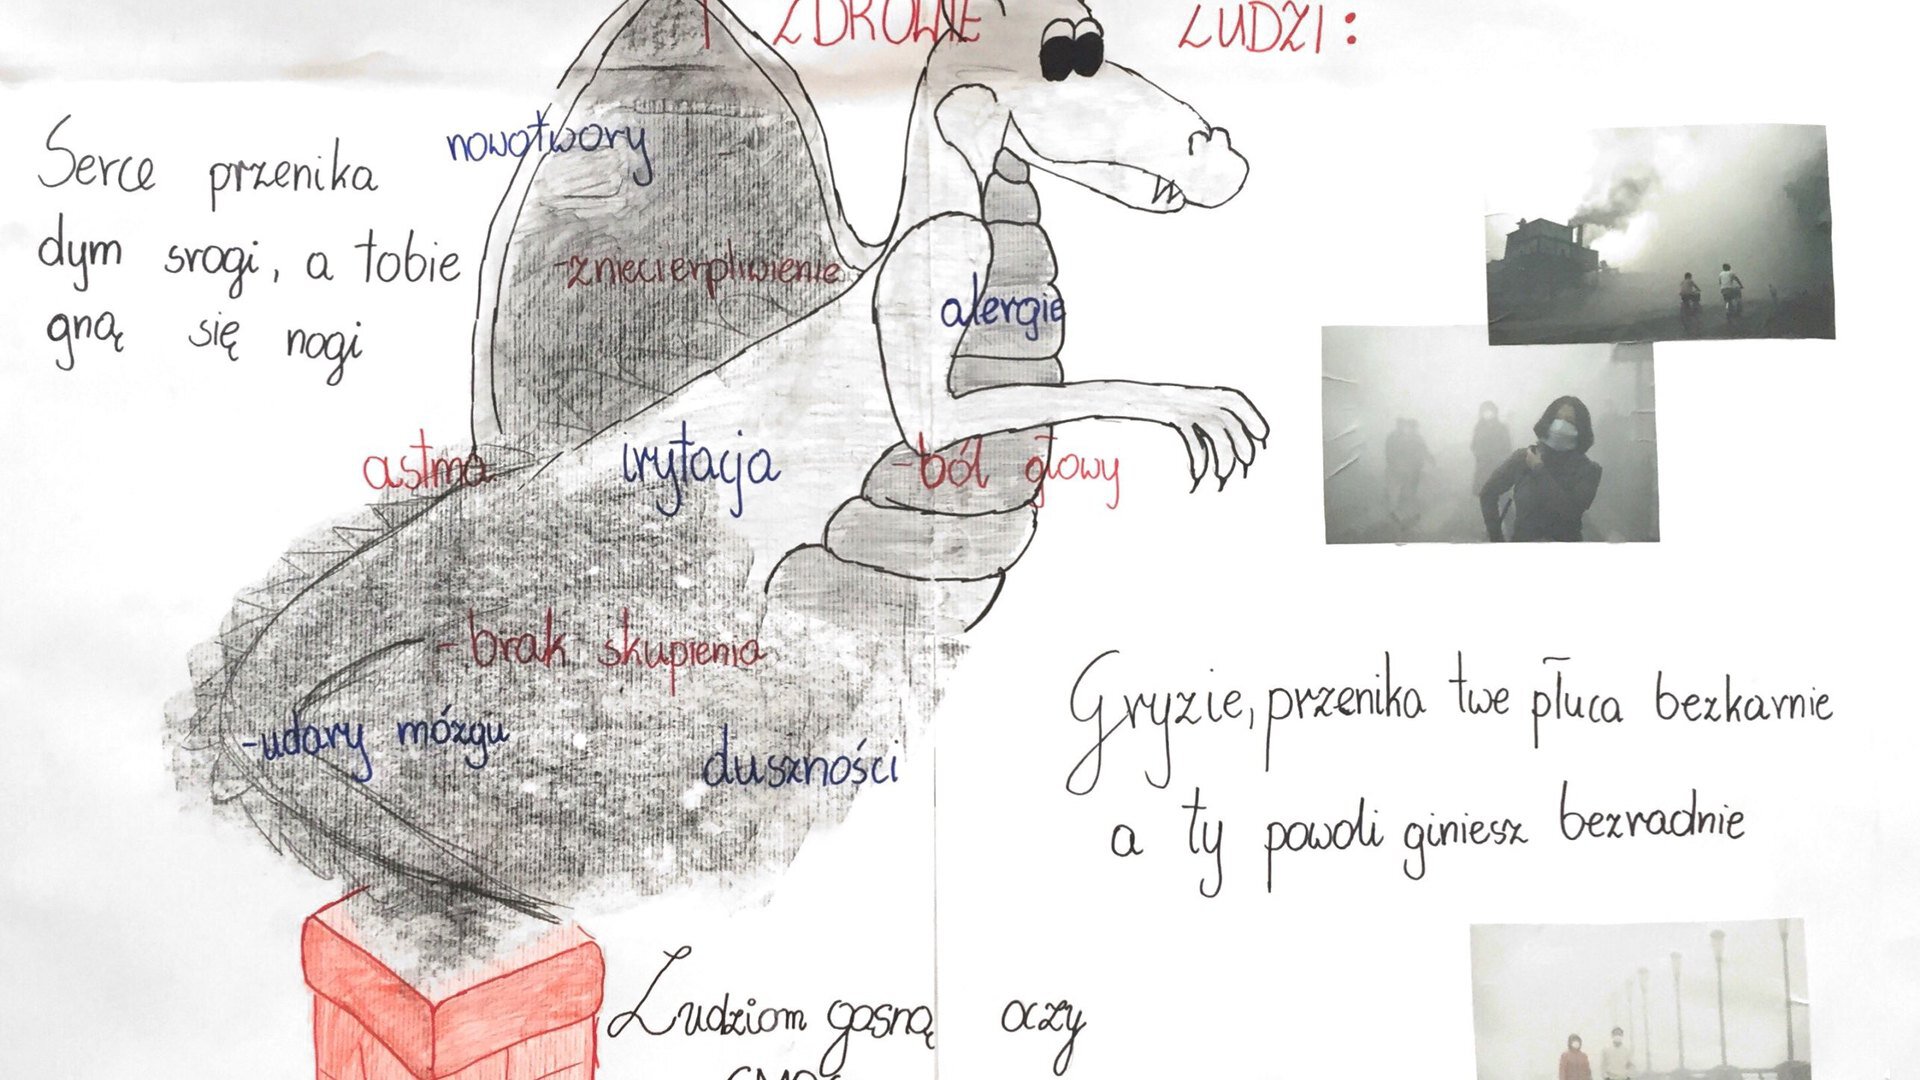 I ZDROWIE LUDZI:
nowotwory
Serce przenika
dym srogi, a tobie
gną się nogi
-zniecierpliwienie
alergie
astma
irytacja
-ból głowy
-brak skupienia
-udary mózgu
duszności
Gryzie, przenika twe płuca bezkarnie
a ty powoli giniesz bezradnie
Ludziom gasną oczy